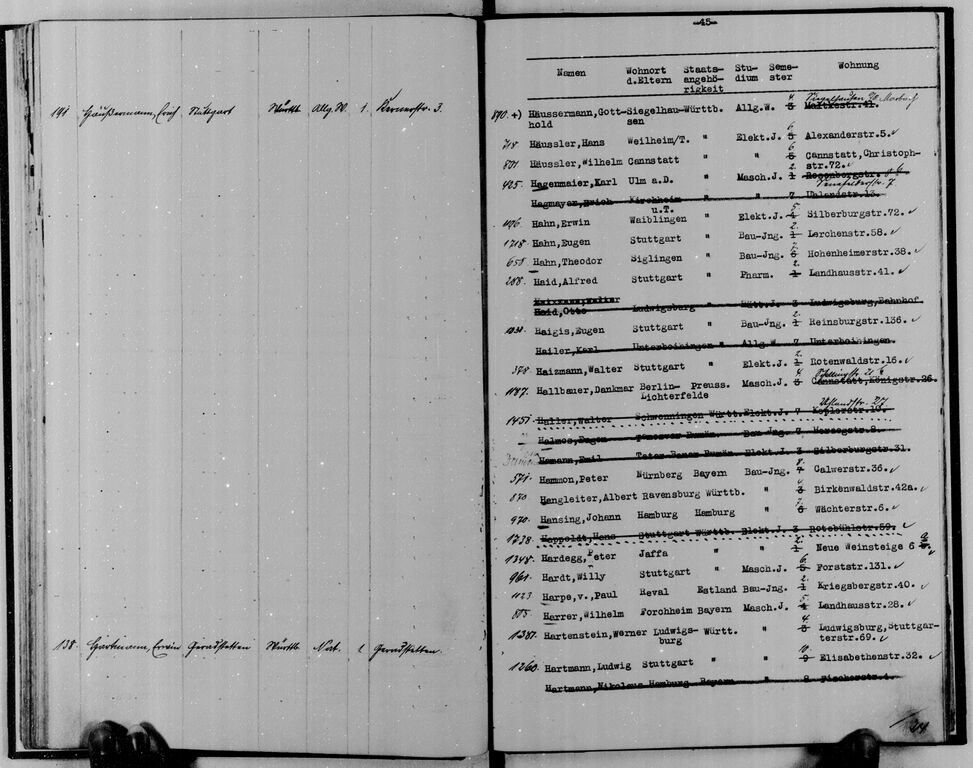 191 Häußermann, Erich Stuttgart Württb. Allg. W. 1. Kernerstr. 3.
138 Hartmann, Erwin Geradstetten Württb. Nat. 1 Geradstetten.
-45-
Namen Wohnort d.Eltern Staats-angehö-rigkeit Stu-dium Seme-ster Wohnung
890. +) Häussermann, Gott- Siegelhau- Württb. Allg.W. 4 5 Moltkestr.41.
hold sen
718 Häussler, Hans Weilheim/T. " Elekt.J. 6 5 Alexanderstr.5. ✓
801 Häussler, Wilhelm Cannstatt " " 6 5 Cannstatt, Christoph-
str.72. ✓
425. Hagenmaier, Karl Ulm a.D. " Masch.J. 2 1 Rosenbergstr.
Hagmayer, Erich Kirchheim " " 7 Uhlandstr.13.
u.T.
1176 Hahn, Erwin Waiblingen " Elekt.J. 5 4 Silberburgstr.72. ✓
1718 Hahn, Eugen Stuttgart " Bau-Jng. 2 1 Lerchenstr.58. ✓
658 Hahn, Theodor Siglingen " Bau-Jng. 5 Hohenheimerstr.38. ✓
288. Haid, Alfred Stuttgart " Pharm. 2 1 Landhausstr.41. ✓
Haid, Otto Ludwigsburg " Hütt.J. 3 Ludwigsburg, Bahnhof
Haigis, Eugen Stuttgart " Bau-Jng. 2 1 Reinsburgstr.136. ✓
Hailer, Karl Unterboihingen " Allg.W 7 Unterboihingen.
378 Haizmann, Walter Stuttgart " Elekt.J. 2 1 Rotenwaldstr.16. ✓
1187. Hallbauer, Dankmar Berlin- Preuss. Masch.J. 4 5 Cannstatt, Königstr.26.
Lichterfelde
Uhlandstr. 27
1451 Haller, Walter Schwenningen Württ. Elekt.J. 7 Keplerstr.10.
Halmos, Eugen Temesvar Rumän. Bau-Jng. 7 Herzogstr.8.
Hamann, Emil Rumän. Elekt.J. 3 Silberburgstr.31.
571. Hammon, Peter Nürnberg Bayern Bau-Jng. 8 7 Calwerstr.36. ✓
870 Hangleiter, Albert Ravensburg Württb. " 4 3 Birkenwaldstr.42a. ✓
970. Hansing, Johann Hamburg Hamburg " 7 6 Wächterstr.6. ✓
1738. Happoldt, Hans Stuttgart Württb. Elekt.J. 3 Rotebühlstr.59. ✓
1348. Hardegg, Peter Jaffa " " 2 1 Neue Weinsteige 6 ✓
961. Hardt, Willy Stuttgart " Masch.J. 6 5 Forststr.131. ✓
1123 Harpe, v., Paul Reval Estland Bau-Jng. 2 1 Kriegsbergstr.40. ✓
805 Harrer, Wilhelm Forchheim Bayern Masch.J. 5 4 Landhausstr.28. ✓
1387. Hartenstein, Werner Ludwigs- Württ. " 4 3 Ludwigsburg, Stuttgar-
burg terstr.69. ✓
1260. Hartmann, Ludwig Stuttgart " " 10 9 Elisabethenstr.32. ✓
Hartmann, Nikolaus Hamburg Bayern " 8 Fischerstr.4.